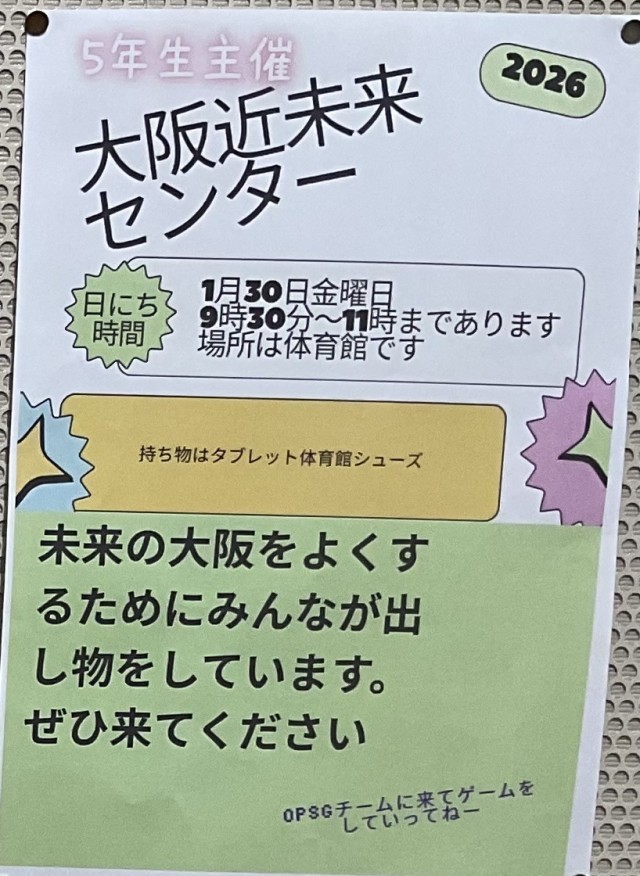 5年生主催
2026
大阪近未来
センター
日にち
時間
1月30日金曜日
9時30分～11時まであります
場所は体育館です
持ち物はタブレット体育館シューズ
未来の大阪をよくす
るためにみんなが出
し物をしています。
ぜひ来てください
OPSGチームに来てゲームを
していってねー